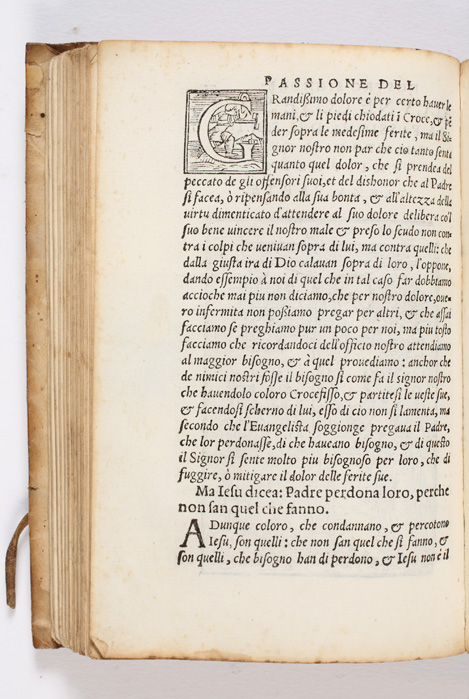 PASSIONE DEL
GRandißimo dolore è per certo hauer le
mani, & li piedi chiodati ĩ Croce, & pẽ
der sopra le medesime ferite, ma il Si
gnor nostro non par che cio tanto senta
quanto quel dolor, che si prendea del
peccato de gli offensori suoi, et del dishonor che al Padre
si facea, ò ripensando alla sua bonta, & all'altezza della
uirtu dimenticato d'attendere al suo dolore delibera co'l
suo bene uincere il nostro male & preso lo scudo non con
tra i colpi che ueniuan sopra di lui, ma contra quelli: che
dalla giusta ira di Dio calauan sopra di loro, l'oppone,
dando essempio à noi di quel che in tal caso far dobbiamo
accioche mai piu non diciamo, che per nostro dolore, oue-
ro infermita non poßiamo pregar per altri, & che assai
facciamo se preghiamo pur un poco per noi, ma piu tosto
facciamo che ricordandoci dell'officio nostro attendiamo
al maggior bisogno, & à quel prouediamo: anchor che
de nimici nostri fosse il bisogno si come fa il signor nostro
che hauendolo coloro Crocefisso, & partitesi le ueste sue,
& facendosi scherno di lui, esso di cio non si lamenta, ma
secondo che l'Euangelista soggionge pregaua il Padre,
che lor perdonasse, di che haueano bisogno, & di questo
il Signor si sente molto piu bisognoso per loro, che di
fuggire, ò mitigare il dolor delle ferite sue.
Ma Iesu dicea: Padre perdona loro, perche
non san quel che fanno.
ADunque coloro, che condannano, & percotono
Iesu, son quelli: che non san quel che si fanno, &
son quelli, che bisogno han di perdono, & Iesu non è il